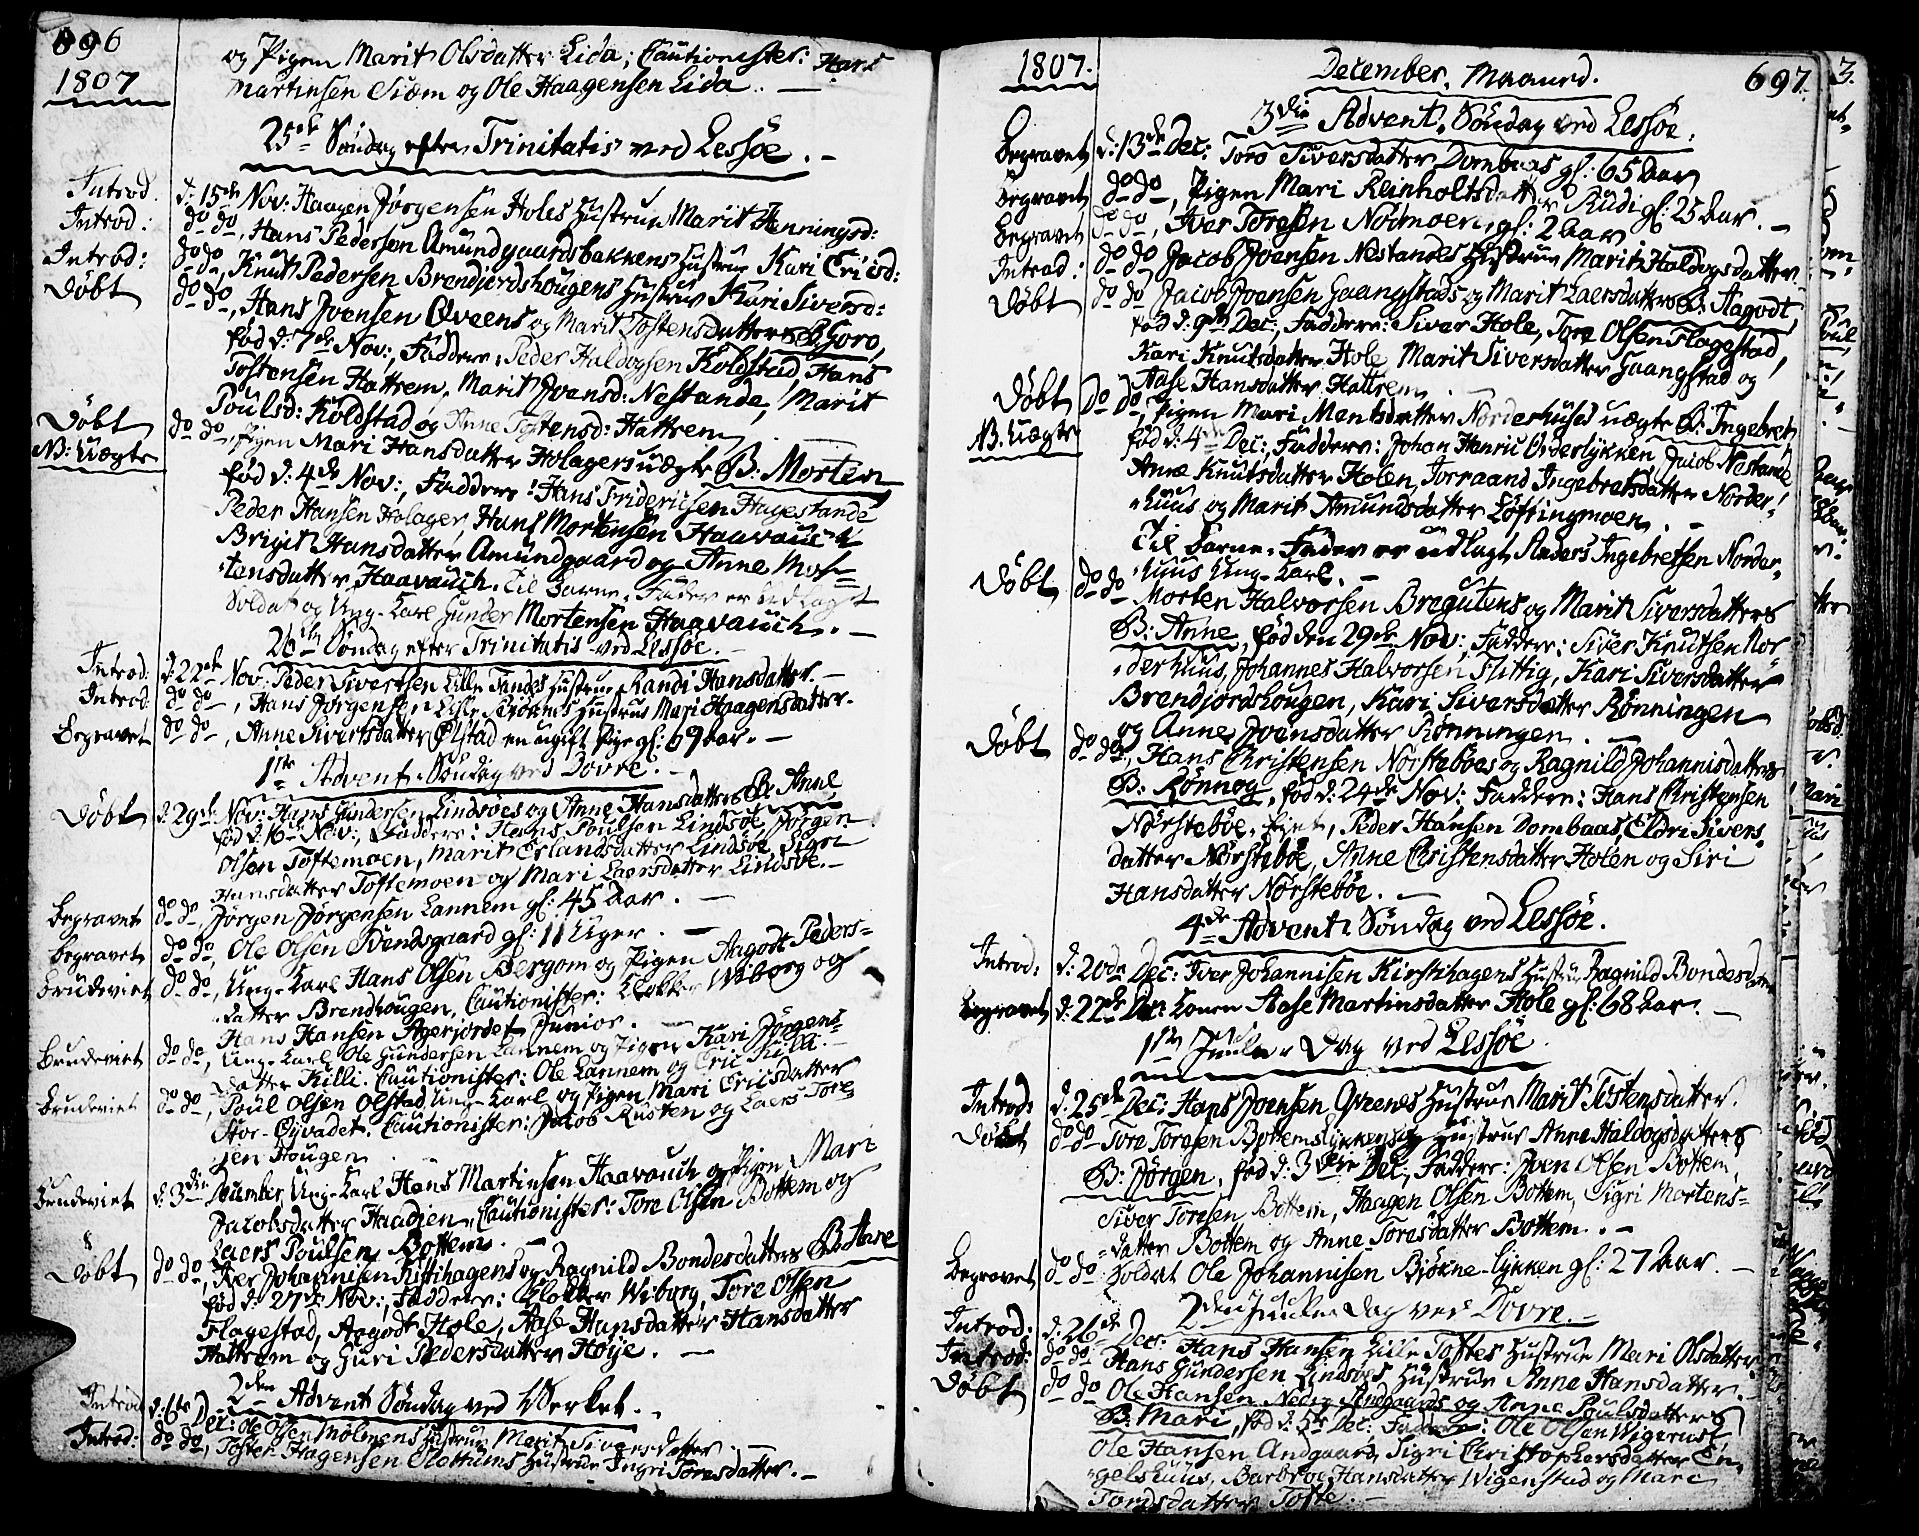 696
1807
og Pigen Marit Olsdatter Lida; Cautionister: Hans
Martinsen Siem og Ole Haagensen Lida. —
25de Søndag efter Trinitatis ved Lessøe. —
Introd. d: 15de Nov: Haagen Jørgensen Holes Hustrue Marit Henningsd:
Introd: do do, Hans Pedersen Amundgaardsbakkens Hustrue Kari Ericsd:
Introd: do do, Knut Pedersen Brendjordshougens Hustrue Kari Siversd:
Døbt do do, Hans Joensen Qveens og Marit Tostensdatters B: Goro,
fød d: 7de Nov:, Faddere: Peder Haldogsen Koldstad, Hans
Tostensen Hattrem, Marit Joensd: Nestande, Marit
Poulsd: Koldstad og Anne Tostensd: Hattrem
Døbt do do, Pigen Mari Hansdatter Holagers uægte B: Morten
NB: Uægte
fød d: 4de Nov:, Faddere: Hans Fridericsen Hagestande
Peder Hansen Holager, Hans Mortensen Haavauch
Brigit Hansdatter Amundgaard og Anne Mor-
tensdatter Haavauch. Til Barne-Fader er Udlagt
Soldat og Ung-Karl Gunder Mortensen Haavauch. —
26de Søndag efter Trinitatis ved Lessøe. —
Introd. d: 22de Nov: Peder Sivertsen Lille Tandes Hustrue Randi Hansdatter. —
Introd: do do, Hans Jørgensen Lille Hustrue Mari Haagensdatter.
Begravet do do, Anne Sivertsdatter Ølstad en ugift Pige gl: 69 Aar. —
1ste Advent-Søndag ved Dovre. —
Døbt d: 29de Nov: Hans Gundersen Lindsøes og Anne Hansdatters B: Anne
fød d: 16de Nov:, Faddere: Hans Poulsen Lindsøe, Jørgen
Olsen Toftemoen, Marit Erlandsdatter Lindsøe, Sigri
Hansdatter Toftemoen og Mari Laersdatter Lindsøe. —
Begravet do do Jørgen Jørgensen Lannem gl: 45 Aar. —
Begravet do do, Ole Olsen Svendsgaard gl: 11 Uger. —
Brudeviet do do, Ung-Karl Hans Olsen Bergom og Pigen Aagodt Peders-
datter Brendhougen, Cautionister: Klokker Wiborg og
Hans Hansen Agerjordet Junior. —
Brudeviet do do, Ung-Karl Ole Gundersen Lannem og Pigen Kari Jørgens-
datter Killi. Cautionister: Ole Lannem og Eric Killi. —
Brudeviet do do, Poul Olsen Olstad Ung-Karl og Pigen Mari Ericsdatter
Stor-Qyvadet. Cautionister: Jacob Rusten og Laers Tore-
sen Hougen
Brudeviet d: 3die December, Ung-Karl Hans Martinsen Haavauch og Pigen Mari
Jacobsdatter Haadien, Cautionister: Tore Olsen Bottem og
Laers Poulsen Bottem. —
Døbt do do, Iver Johannisen Kirstihagens og Ragnild Bondesdatters B: Aase
fød d: 27de Nov:, Faddere: Klokker Wiborg, Tore Olsen
Flagestad, Aagodt Hole, Aase Hansdatter Hansdatter
Hattrem og Guri Pedersdatter Høye. —
2den Advent Søndag ved Werket. —
Introd. d: 6te Dec: Ole Olsen Mølmens Hustrue Marit Siversdatter. —
Introd: do do, Tosten Hagensen Slottums Hustrue Ingri Toresdatter. —
1807.
December, Maaned.
697.
3die Advent, Søndag ved Lessøe.
Begravet d: 13de Dec: Toro Siversdatter Dombaas gl: 65 Aar
Begravet do do, Pigen Mari Reinholtsdatter Rudi gl: 25 Aar. —
Begravet do do, Iver Toresen Nordmoen, gl: 2 Aar
Introd: do do Jacob Joensen Nestandes Hustrue Marit Haldogsdatter
Døbt do do Jacob Joensen Gaangstads og Marit Laersdatters B: Aagodt,
fød d: 9de Dec:, Faddere: Siver Hole, Tore Olsen Flagestad,
Kari Knutsdatter Hole, Marit Siversdatter Gaangstad og
Aase Hansdatter Hattrem
Døbt do do, Pigen Mari Mentsdatter Norderhuses uægte B: Ingebret,
NB. Uægte
fød d: 4de Dec:, Faddere: Johan Henric Orderlykken, Jacob Nestande
Anne Knutsdatter Holen, Torraand Ingebretsdatter Norder-
huus og Marit Amundsdatter Løftingmoen. —
Til Barne-Fader er udlagt Anders Ingebretsen Norder-
huus Ung-Karl. —
Døbt do do Morten Halvorsen Bregutens og Marit Siversdatters
B: Anne, fød den 29de Nov:, Faddere: Siver Knutsen Nor-
derhuus, Johannes Halvorsen Flittig, Kari Siversdatter
Brendjordshougen, Kari Siversdatter Rønningen
og Anne Joensdatter Rønningen. —
Døbt do do, Hans Christensen Nørstebøes og Ragnild Johannisdatters
B: Rønnog, fød d: 24de Nov: Faddere: Hans Christensen
Nørstebøe, Peder Hansen Dombaas, Eldri Sivers-
datter Nørstebøe, Anne Christensdatter Holen og Siri
Hansdatter Nørstebøe. —
4de Advent Søndag ved Lessøe.
Introd: d: 20de Dec: Iver Johannisen Kirstihagens Hustrue Ragnild Bondesdatter
Begravet d: 22de Dec: Konen Aase Martinsdatter Hole gl: 68 Aar. —
1ste Juule-Dag ved Lessøe
Introd: d: 25de Dec: Hans Joensen Qveenes Hustrue Marit Tostensdatter.
Døbt do do Tore Toresen Bottemslykkens og Hustrue Anne Haldogsdatters
B: Jørgen, fød d: 3die Dec:, Faddere: Joen Olsen Bottem,
Siver Toresen Bottem, Haagen Olsen Bottem, Sigri Mortens-
datter Bottem og Anne Toresdatter Bottem. —
Begravet do do Soldat Ole Johannisen Bjøkne-lykken gl: 27 Aar. —
2den Juule Dag ved Dovre. —
Introd: d: 26de Dec: Hans Hansen Lille Toftes Hustrue Mari Olsdatter
Introd: do do Hans Gundersen Lindsøes Hustrue Anne Hansdatter. —
Døbt do do Ole Hansen Nedre Andgaards og Anne Poulsdatters
B: Mari, fød d: 5te Dec: Faddere: Ole Olsen Wigerust
Ole Hansen Andgaard, Sigri Christophersdatter En-
gelshuus, Barbroe Hansdatter Wigenstad og Mari
Tordsdatter Tofte. —